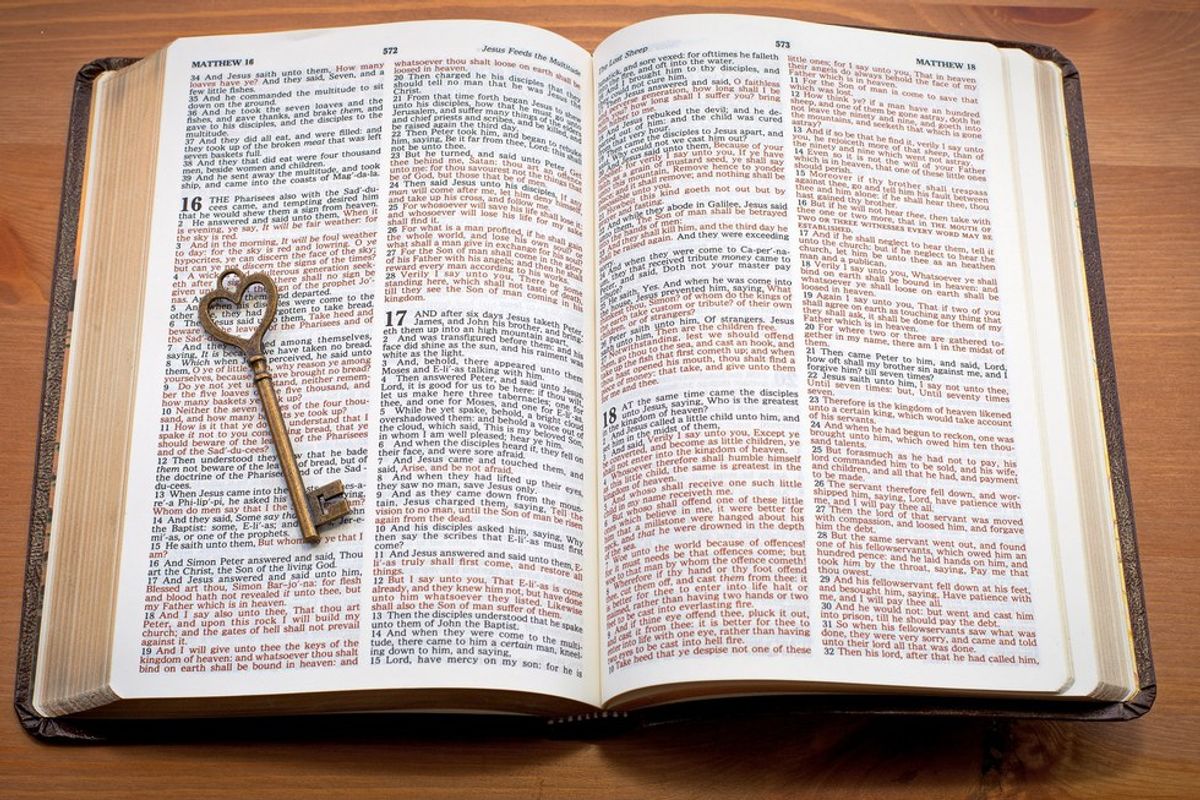 MATTHEW 16
572
Jesus Feeds the Multitude
34 And Jesus saith unto them, How many
loaves have ye? And they said, Seven, and a
few little fishes.
35 And he commanded the multitude to sit
down on the ground.
36 And he took the seven loaves and the
fishes, and gave thanks, and brake them, and
gave to his disciples, and the disciples to the
multitude.
37 And they did all eat, and were filled: and
they took up of the broken meat that was left
seven baskets full.
38 And they that did eat were four thousand
men, beside women and children.
39 And he sent away the multitude, and took
ship, and came into the coasts of Mag'-da-la.
16 THE Pharisees also with the Sad'-du-
cees came, and tempting desired him
that he would shew them a sign from heaven.
2 He answered and said unto them, When it
is evening, ye say, It will be fair weather: for
the sky is red.
3 And in the morning, It will be foul weather
to day: for the sky is red and lowring. O ye
hypocrites, ye can discern the face of the sky;
but can ye discern the signs of the times?
4 A wicked ulterous generation seek-
eth after a there shall no sign be
given unto of the prophet Jo'-
nas. And departed.
5 And when his disciples were come to the
other had forgotten to take bread.
6 Then Jesus said Take heed and
beware the leaven of the Pharisees and of
the Sad
7 And they among themselves,
saying, It is because we have taken no bread.
8 Which when perceived, he said unto
them, O ye of little why reason ye among
yourselves, because have brought no bread?
9 Do ye not yet stand, neither remem-
ber the five loaves five thousand, and
how many baskets up?
10 Neither the seven of the four thou-
sand, and how many ts ye took up?
11 How is it that ye understand that I
spake it not to you bread, that ye
should beware of the of the Pharisees
and of the Sad'-du-cees?
12 Then understood they how that he bade
them not beware of the of bread, but of
the doctrine of the Pharisees of the Sad'-
du-cees.
13 When Jesus came into the
re'-a Phi-lip'-pi, he asked his saying,
Whom do men say that I the
14 And they said, Some say
the Baptist: some, E-li'-as; and Jer-e-
mi'-as, or one of the prophets.
15 He saith unto them, But whom ye that I
am?
16 And Simon Peter answered and said, Thou
art the Christ, the Son of the living God.
17 And Jesus answered and said unto him,
Blessed art thou, Simon Bar–jo'-na: for flesh
and blood hath not revealed it unto thee, but
my Father which is in heaven.
18 And I say also unto thee, That thou art
Peter, and upon this rock I will build my
church; and the gates of hell shall not prevail
against it.
19 And I will give unto thee the keys of the
kingdom of heaven: and whatsoever thou shalt
bind on earth shall be bound in heaven: and
whatsoever thou shalt loose on earth shall be
loosed in heaven.
20 Then charged he his disciples that they
should tell no man that he was Jesus the
Christ.
21 From that time forth began Jesus to shew
unto his disciples, how that he must go unto
Jerusalem, and suffer many things of the elders
and chief priests and scribes, and be killed, and
be raised again the third day.
22 Then Peter took him, and began to rebuke
him, saying, Be it far from thee, Lord: this shall
not be unto thee.
23 But he turned, and said unto Peter, Get
thee behind me, Satan: thou art an offence
unto me: for thou savourest not the things that
be of God, but those that be of men.
24 Then said Jesus unto his disciples, If any
man will come after me, let him deny himself,
and take up his cross, and follow me.
25 For whosoever will save his life shall lose it:
and whosoever will lose his life for my sake
shall find it.
26 For what is a man profited, if he shall gain
the whole world, and lose his own soul? or
what shall a man give in exchange for his soul?
27 For the Son of man shall come in the glory
of his Father with his angels; and then he shall
reward every man according to his works.
28 Verily I say unto you, There be some
standing here, which shall not taste of death,
till they see the Son of man coming in his
kingdom.
17 AND after six days Jesus taketh Peter,
James, and John his brother, and bring-
eth them up into an high mountain apart,
2 And was transfigured before them: and his
face did shine as the sun, and his raiment was
white as the light.
3 And, behold, there appeared unto them
Moses and E-li'-as talking with him.
4 Then answered Peter, and said unto Jesus,
Lord, it is good for us to be here: if thou wilt,
let us make here three tabernacles; one for
thee, and one for Moses, and one for E-li'-as.
5 While he yet spake, behold, a bright cloud
overshadowed them: and behold a voice out of
the cloud, which said, This is my beloved Son,
in whom I am well pleased; hear ye him.
6 And when the disciples heard it, they fell on
their face, and were sore afraid.
7 And Jesus came and touched them, and
said, Arise, and be not afraid.
8 And when they had lifted up their eyes,
they saw no man, save Jesus only.
9 And as they came down from the moun-
tain, Jesus charged them, saying, Tell the
vision to no man, until the Son of man be risen
again from the dead.
10 And his disciples asked him, saying, Why
then say the scribes that E-li'-as must first
come?
11 And Jesus answered and said unto them, E-
li'-as truly shall first come, and restore all
things.
12 But I say unto you, That E-li'-as is come
already, and they knew him not, but have done
unto him whatsoever they listed. Likewise
shall also the Son of man suffer of them.
13 Then the disciples understood that he spake
unto them of John the Baptist.
14 And when they were come to the multi-
tude, there came to him a certain man, kneel-
ing down to him, and saying,
15 Lord, have mercy on my son: for he is
The Lost Sheep
573
MATTHEW 18
lunatick, and sore vexed: for ofttimes he falleth
fire, and oft into the water.
I brought him to thy disciples, and
could not cure him.
Jesus answered and said, O faithless
perverse generation, how long shall I be
how long shall I suffer you? bring
to me.
Jesus rebuked the devil; and he de-
out of him: and the child was cured
hour.
came the disciples to Jesus apart, and
Why could not we cast him out?
Jesus said unto them, Because of your
for verily I say unto you, If ye have
a grain of mustard seed, ye shall say
mountain, Remove hence to yonder
it shall remove; and nothing shall be
unto you.
this kind goeth not out but by
fasting.
while they abode in Galilee, Jesus said
The Son of man shall be betrayed
hands of men:
they shall kill him, and the third day he
raised again. And they were exceeding
when they were come to Ca-per'-na-
they that received tribute money came to
and said, Doth not your master pay
saith, Yes. And when he was come into
Jesus prevented him, saying, What
Simon? of whom do the kings of
take custom or tribute? of their own
or of strangers?
Peter saith unto him, Of strangers. Jesus
unto him, Then are the children free.
Notwithstanding, lest we should offend
go thou to the sea, and cast an hook, and
up the fish that first cometh up; and when
hast opened his mouth, thou shalt find a
of money: that take, and give unto them
me and thee.
18 AT the same time came the disciples
unto Jesus, saying, Who is the greatest
in the kingdom of heaven?
2 And Jesus called a little child unto him, and
him in the midst of them,
And said, Verily I say unto you, Except ye
be converted, and become as little children, ye
shall not enter into the kingdom of heaven.
4 Whosoever therefore shall humble himself
as this little child, the same is greatest in the
kingdom of heaven.
And whoso shall receive one such little
in my name receiveth me.
whoso shall offend one of these little
which believe in me, it were better for
that a millstone were hanged about his
and that he were drowned in the depth
of the sea.
Woe unto the world because of offences!
it must needs be that offences come; but
woe to that man by whom the offence cometh!
Wherefore if thy hand or thy foot offend
thee, cut them off, and cast them from thee: it
is better for thee to enter into life halt or
maimed, rather than having two hands or two
feet to be cast into everlasting fire.
And if thine eye offend thee, pluck it out,
and cast it from thee: it is better for thee to
enter into life with one eye, rather than having
two eyes to be cast into hell fire.
10 Take heed that ye despise not one of these
little ones; for I say unto you, That in heaven
their angels do always behold the face of my
Father which is in heaven.
11 For the Son of man is come to save that
which was lost.
12 How think ye? if a man have an hundred
sheep, and one of them be gone astray, doth he
not leave the ninety and nine, and goeth into
the mountains, and seeketh that which is gone
astray?
13 And if so be that he find it, verily I say unto
you, he rejoiceth more of that sheep, than of
the ninety and nine which went not astray.
14 Even so it is not the will of your Father
which is in heaven, that one of these little ones
should perish.
15 Moreover if thy brother shall trespass
against thee, go and tell him his fault between
thee and him alone: if he shall hear thee, thou
hast gained thy brother.
16 But if he will not hear thee, then take with
thee one or two more, that IN THE MOUTH OF
TWO OR THREE WITNESSES EVERY WORD MAY BE
ESTABLISHED.
17 And if he shall neglect to hear them, tell it
unto the church: but if he neglect to hear the
church, let him be unto thee as an heathen
man and a publican.
18 Verily I say unto you, Whatsoever ye shall
bind on earth shall be bound in heaven: and
whatsoever ye shall loose on earth shall be
loosed in heaven.
19 Again I say unto you, That if two of you
shall agree on earth as touching any thing that
they shall ask, it shall be done for them of my
Father which is in heaven.
20 For where two or three are gathered to-
gether in my name, there am I in the midst of
them.
21 Then came Peter to him, and said, Lord,
how oft shall my brother sin against me, and I
forgive him? till seven times?
22 Jesus saith unto him, I say not unto thee,
Until seven times: but, Until seventy times
seven.
23 Therefore is the kingdom of heaven likened
unto a certain king, which would take account
of his servants.
24 And when he had begun to reckon, one was
brought unto him, which owed him ten thou-
sand talents.
25 But forasmuch as he had not to pay, his
lord commanded him to be sold, and his wife,
and children, and all that he had, and payment
to be made.
26 The servant therefore fell down, and wor-
shipped him, saying, Lord, have patience with
me, and I will pay thee all.
27 Then the lord of that servant was moved
with compassion, and loosed him, and forgave
him the debt.
28 But the same servant went out, and found
one of his fellowservants, which owed him an
hundred pence: and he laid hands on him, and
took him by the throat, saying, Pay me that
thou owest.
29 And his fellowservant fell down at his feet,
and besought him, saying, Have patience with
me, and I will pay thee all.
30 And he would not: but went and cast him
into prison, till he should pay the debt.
31 So when his fellowservants saw what was
done, they were very sorry, and came and told
unto their lord all that was done.
32 Then his lord, after that he had called him,